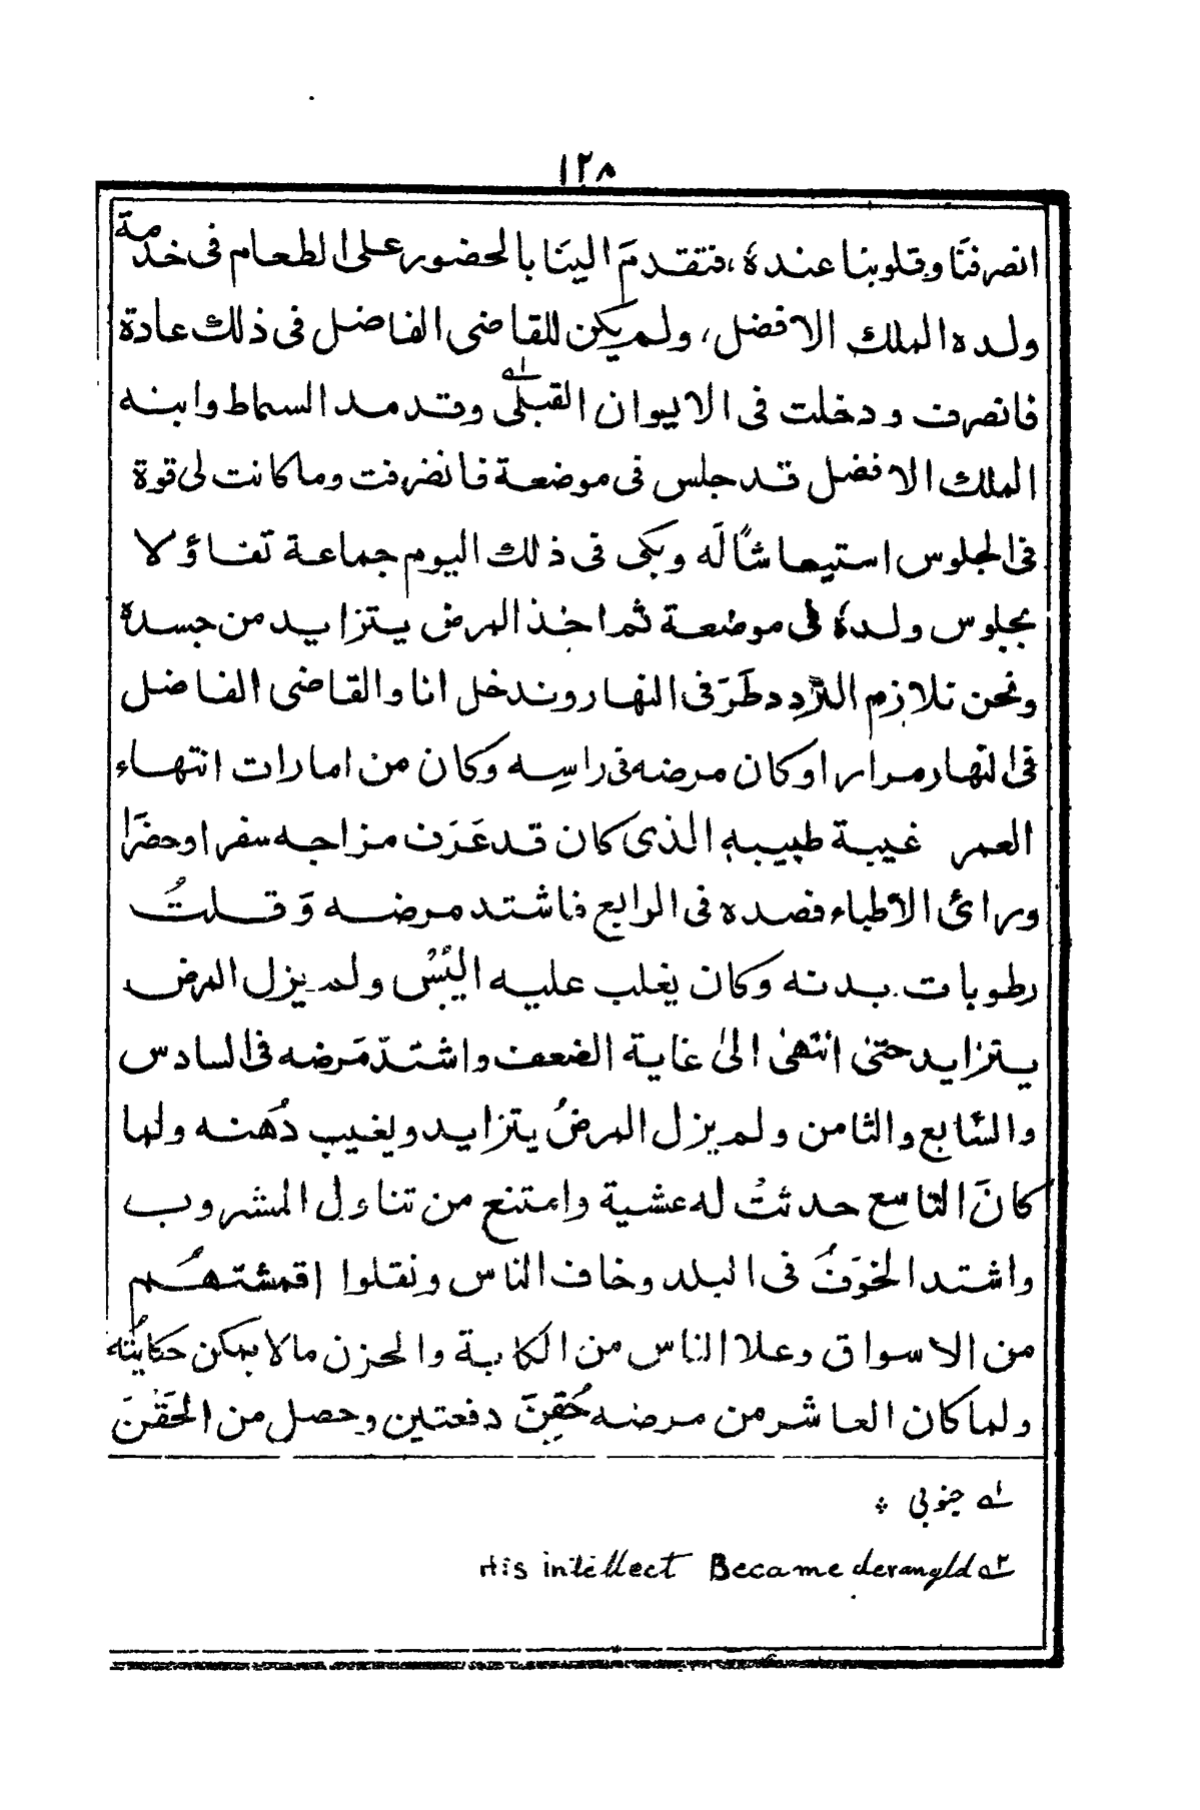 ١٢٨
انصرفنَا وقلوبنا عندهٗ، فتقدمَ الينَا بالحضور على الطعام فى خدمة
ولده الملك الافضل، ولم يكن للقاضى الفاضل فى ذلك عادة
فانصرف ودخلت فى الايوان القبلى اے وقد مد السماط وابنه
الملك الافضل قد جلس فى موضعة فانضرفت وما كانت لى قوة
فى الجلوس استيحاشًا لَه وبكى فى ذلك اليوم جماعة تفاؤلا
بجلوس ولدهٗ فى موضعة ثم اخذ المرض يتزايد من جسدهٗ
ونحن نلازم التّردد طَرَفى النهار وندخل انا والقاضى الفاضل
فى النهار مرارا وكان مرضه فى راسِه وكان من امارات انتهاء
العمر غيبة طبيبه الذى كان قد عَرَف مزاجه سفرا وحضَرا
ورائ الاطباء فصده فى الرابع فاشتد مرضه وَقلتُ
رطوبات بدنه وكان يغلب عليه اليُبْسُ ولم يزل المرض
يتزايد حتىٰ انتهىٰ الىٰ غاية الضعف واشتدّ مَرضه فى السادس
والسّابع والثامن ولم يزل المرضُ يتزايد ويغيب ذُهنه ولما
كانَ التاسع حدثتُ له عشية وامتنع من تناول المشروب
واشتد الخوَفُ فى البلد وخاف الناس ونقلوا اقمشتهُم
من الاسواق وعلا الناس من الكابة والحزن مالا يمكن حكايتُه
ولما كان العاشر من مرضه حُقِنَ دفعتين وحصل من الحَقْنَ
اے جنوبى *
٢ے His intellect Became derangld